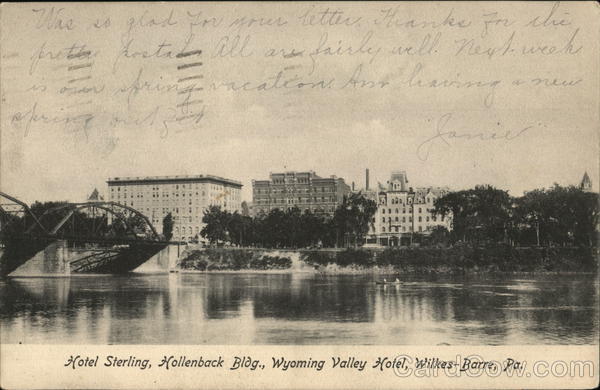 Was so glad for your letter. Thanks for the
pretty postal. All are fairly well. Next week
is our spring vacation. Am having a new
spring outfit
Janie
Hotel Sterling, Hollenback Bldg., Wyoming Valley Hotel, Wilkes-Barre, Pa.
CardCow.com